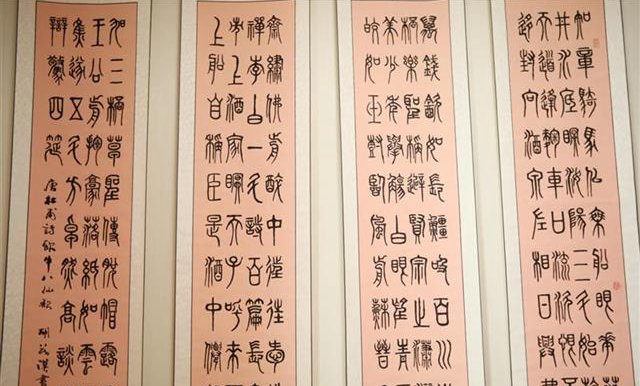 知章騎馬似乘船眼花
井水底眠汝陽三斗始
天道逢麴車口流涎恨
移封向酒泉左相日興費
萬錢飲如長鯨吸百川
杯樂聖稱避賢宗之瀟
美少年舉觴白眼望青
皎如玉樹臨風前蘇晉
齋繡佛前醉中往往愛
禪李白一斗詩百篇長
市上酒家眠天子呼來
上船自稱臣是酒中仙
旭三杯草聖傳脫帽露
王公前揮毫落紙如雲
焦遂五斗方卓然高談
辯驚四筵
唐杜甫詩飲中八仙歌